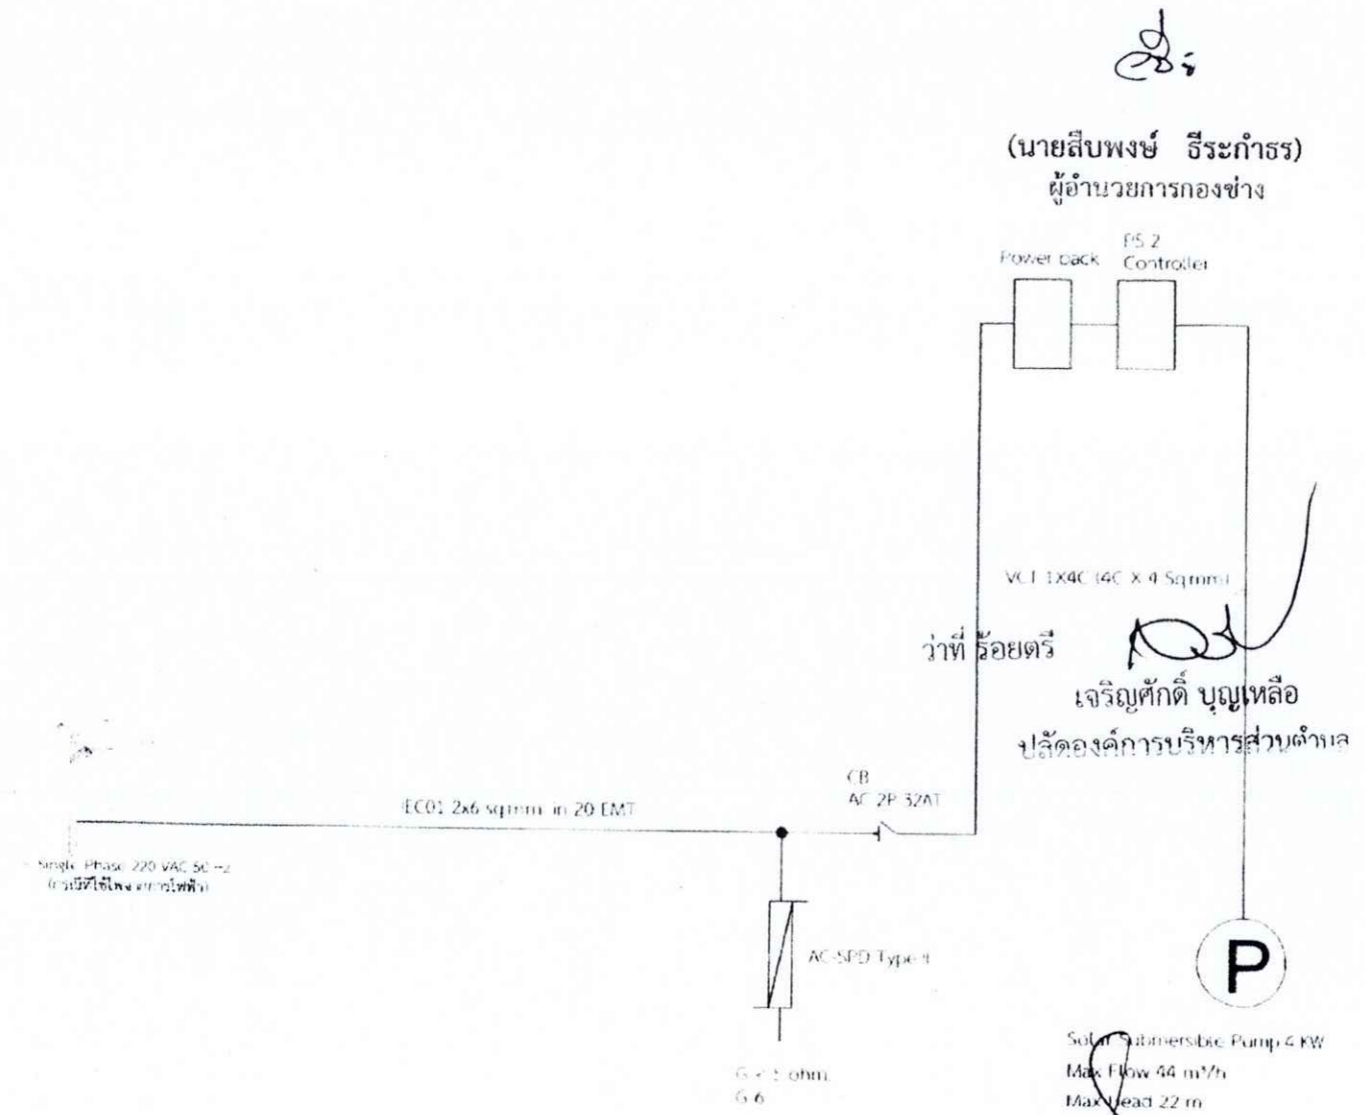 (นายสืบพงษ์ ธีระกำธร)
ผู้อำนวยการกองช่าง
Power pack
PS 2
Controller
VCT 1X4C (4C X 4 Sqmm)
ว่าที่ ร้อยตรี
เจริญศักดิ์ บุญเหลือ
ปลัดองค์การบริหารส่วนตำบล
CB
AC 2P 32AT
IEC01 2x6 sqmm in 20 EMT
Single Phase 220 VAC 50 Hz
AC-SPD Type II
P
ohm
G-6
Solar Submersible Pump 4 KW
Max Flow 44 m³/h
Max Head 22 m